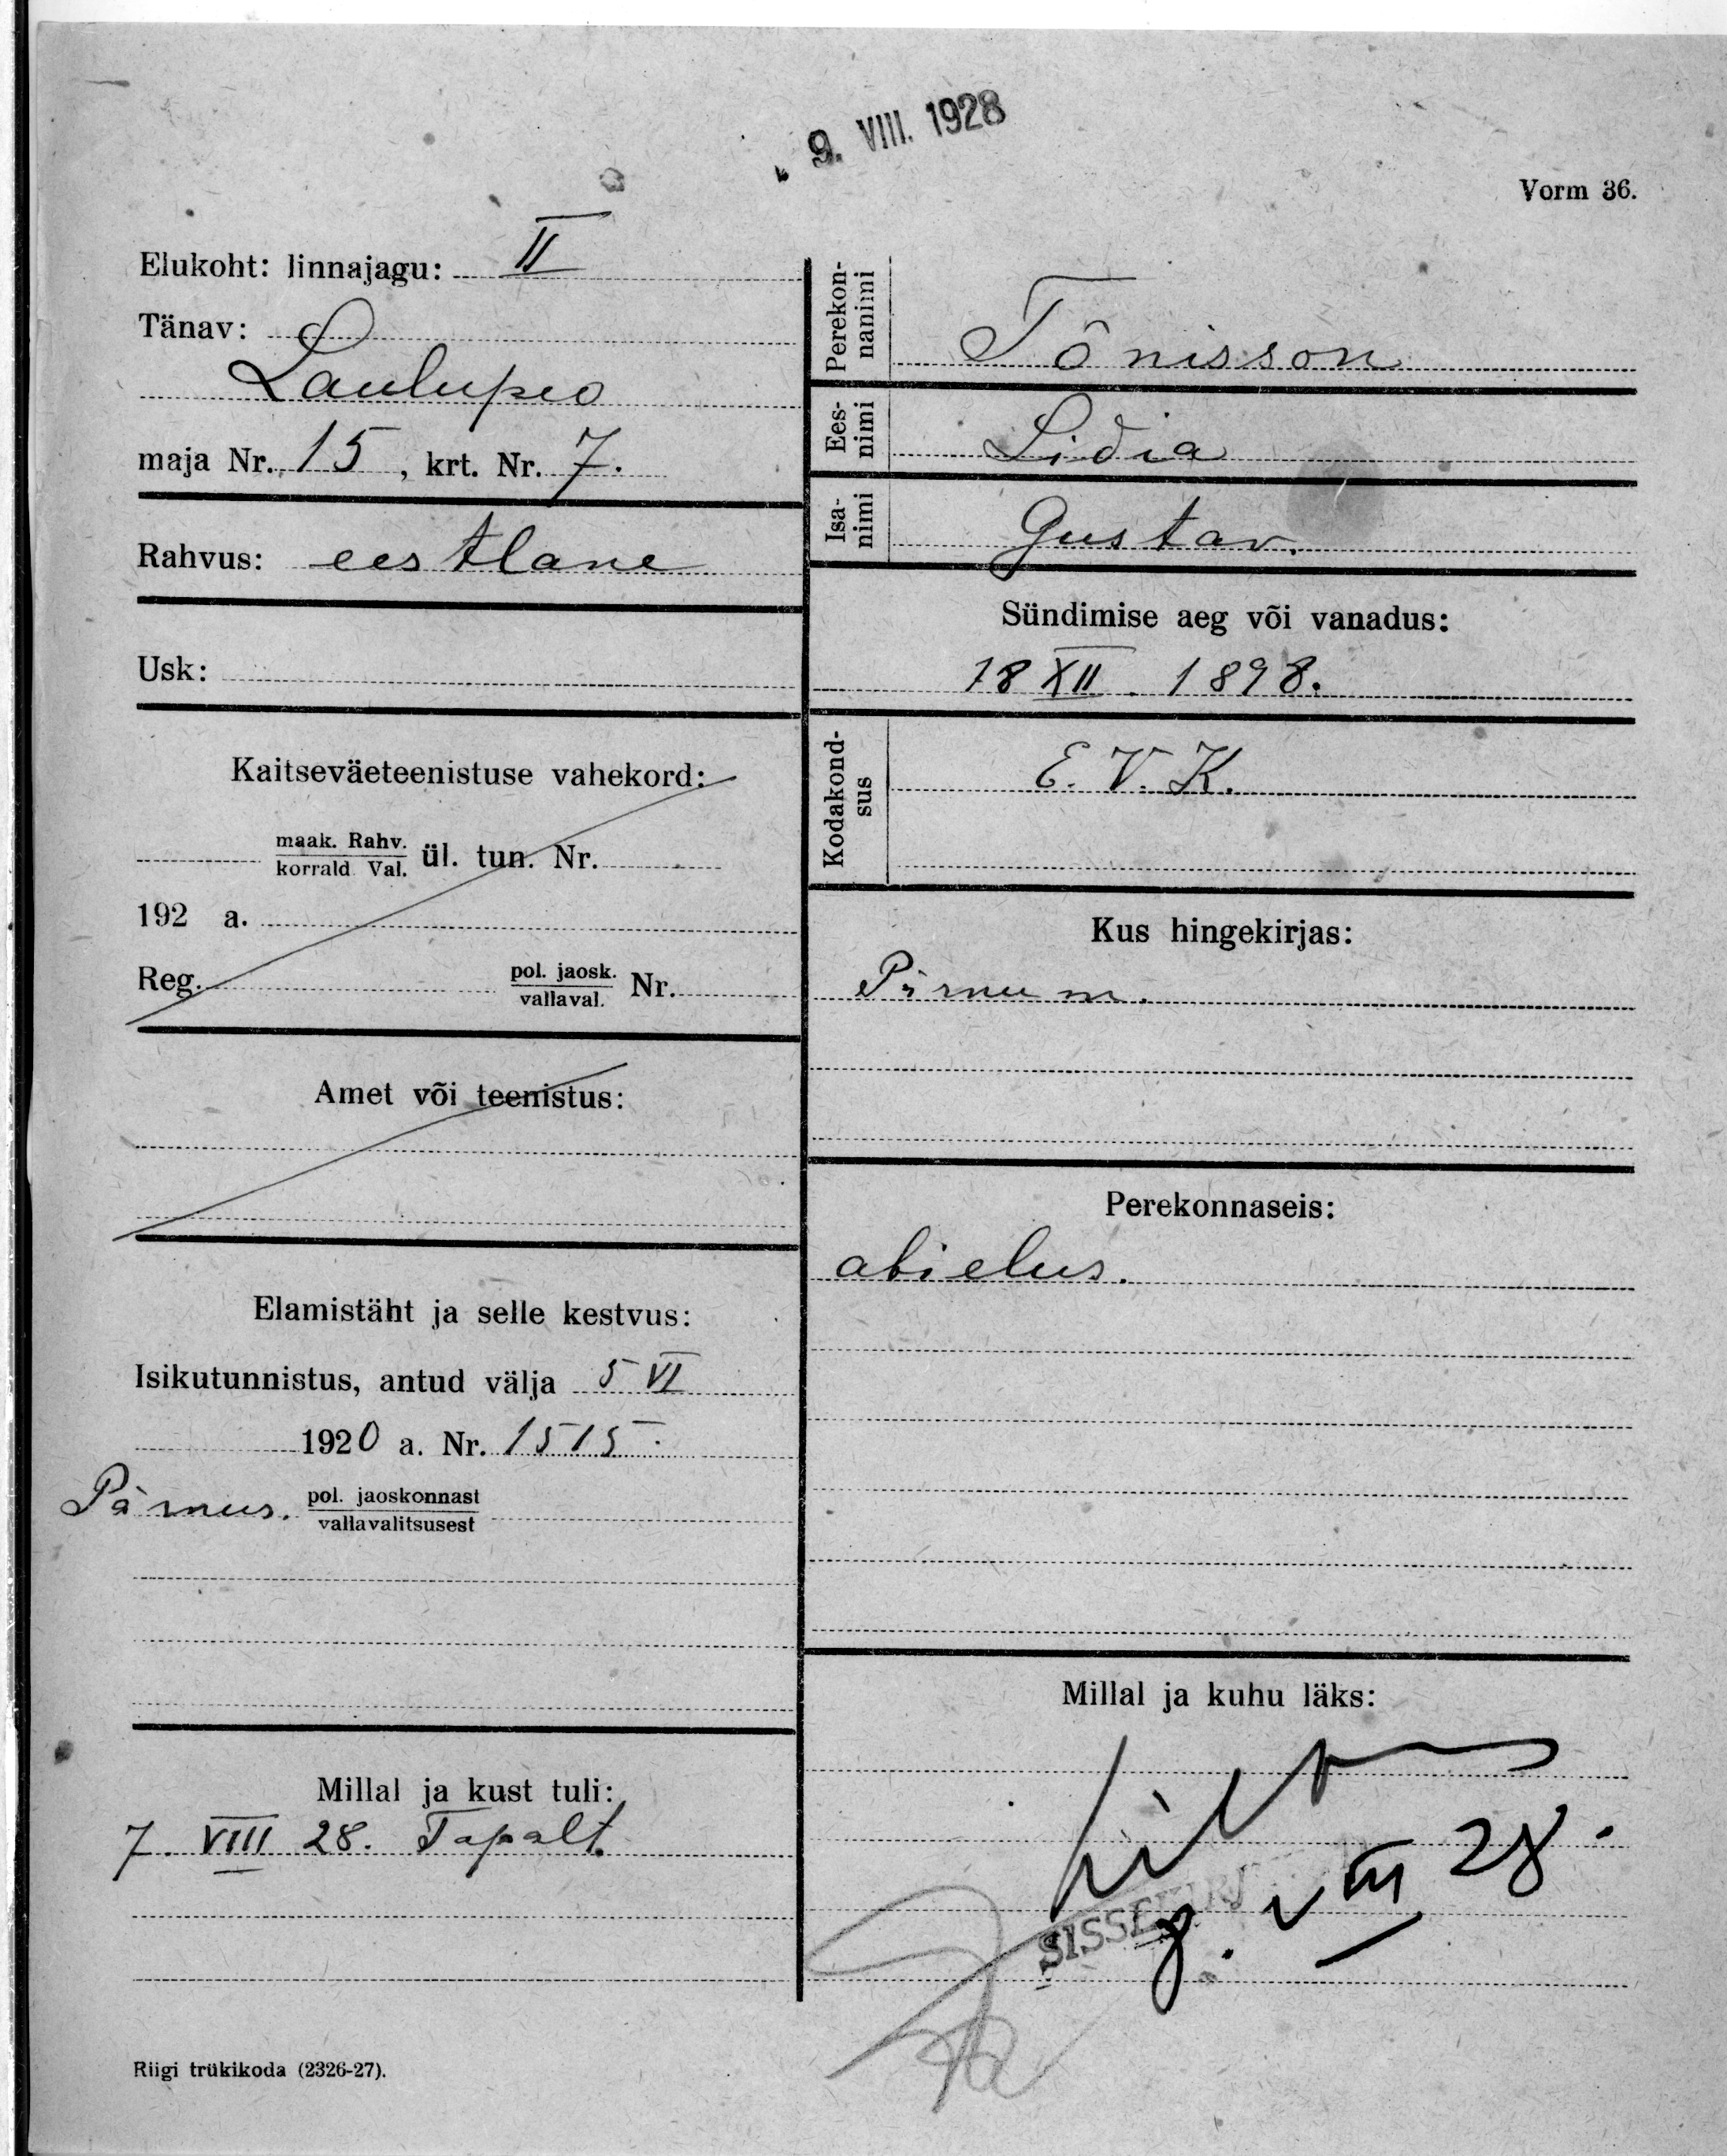 9. VIII. 1928
Vorm 36.
Elukoht: linnajagu: II
Tänav:
Laulupeo
maja Nr. 15, krt. Nr. 7.
Rahvus: eestlane
Usk:
Kaitseväeteenistuse vahekord:
maak. Rahv.
korrald. Val. ül. tun. Nr.
192 a.
Reg. pol. jaosk.
vallaval. Nr.
Amet või teenistus:
Elamistäht ja selle kestvus:
Isikutunnistus, antud välja 5 VI
1920 a. Nr. 1515.
Pärnus. pol. jaoskonnast
vallavalitsusest
Millal ja kust tuli:
7. VIII 28. Tapalt.
Riigi trükikoda (2326-27).
Perekon-
nanimi
Tõnisson
Ees-
nimi
Lidia
Isa-
nimi
Gustav.
Sündimise aeg või vanadus:
18 XII. 1898.
Kodakond-
sus
E. V. K.
Kus hingekirjas:
Pärnu m.
Perekonnaseis:
abielus.
Millal ja kuhu läks:
VIII 28.